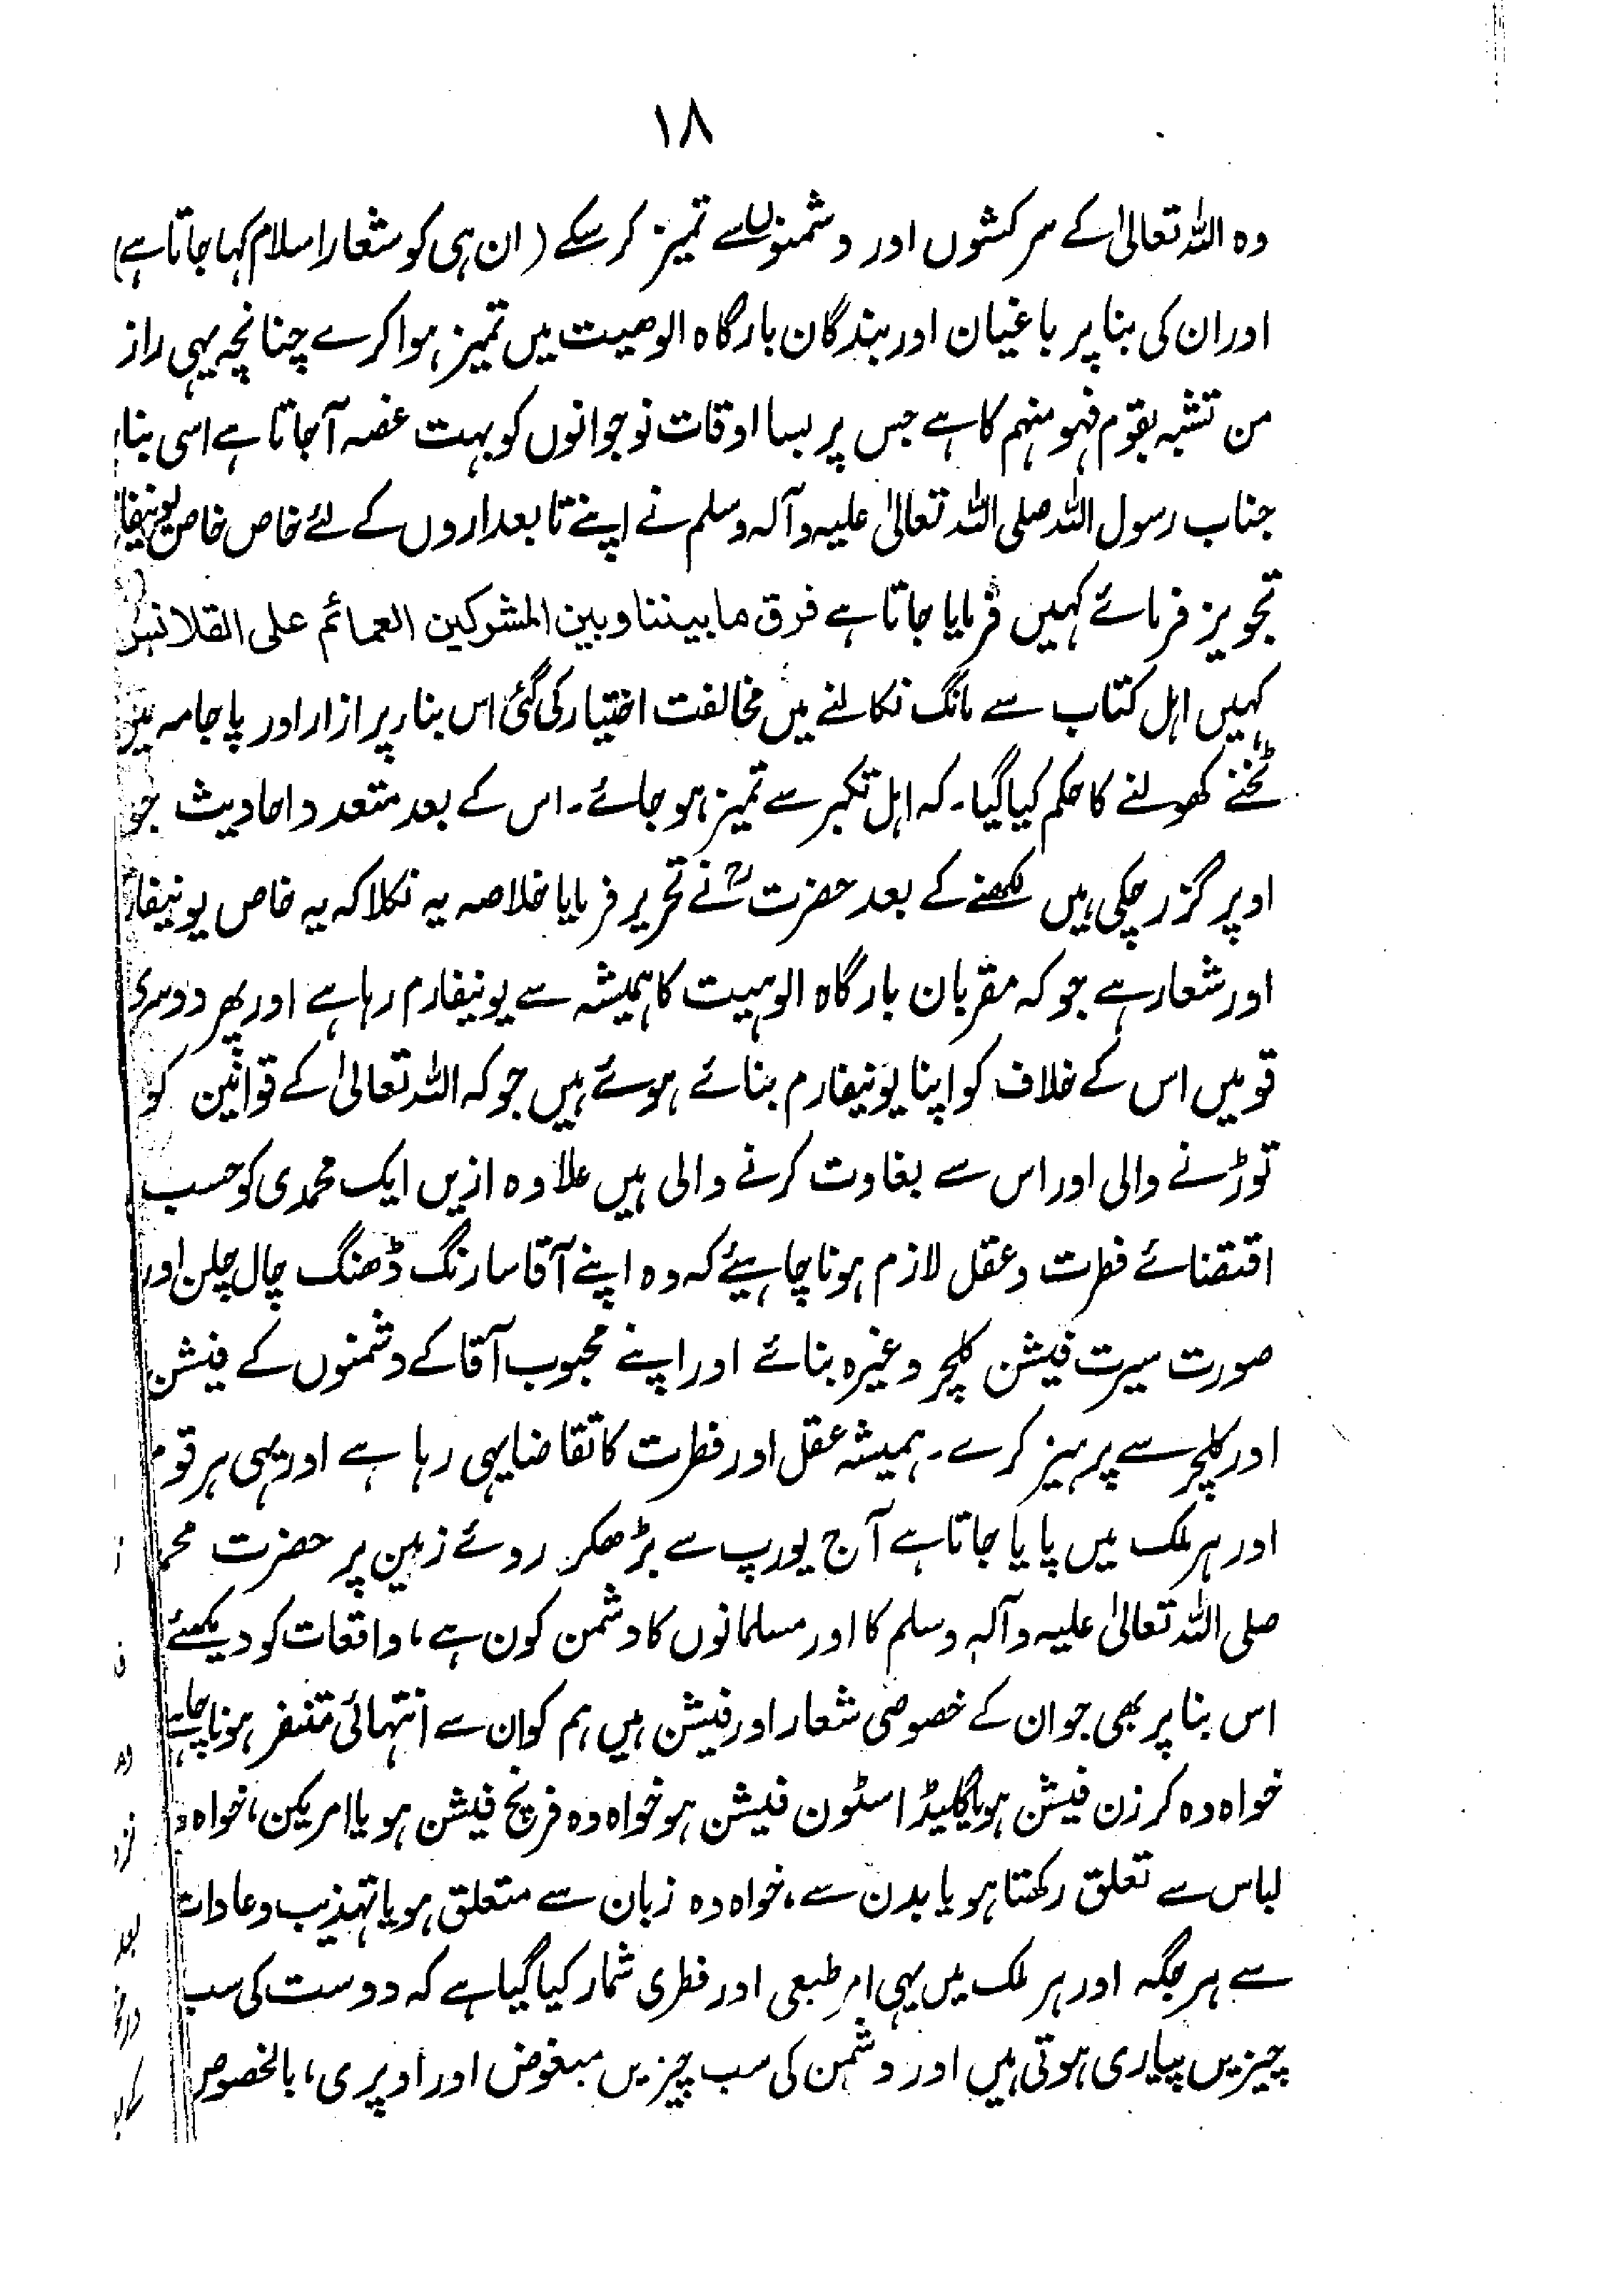 ۱۸
وہ اللہ تعالیٰ کے سرکشوں اور دشمنوں سے تمیز کر سکے (ان ہی کو شعار اسلام کہا جاتا ہے)
اور ان کی بنا پر باغیان اور بندگان بارگاہ الوھیت میں تمیز ہوا کرے چنانچہ یہی راز
من تشبہ بقوم فہو منہم کا ہے جس پر بسا اوقات نوجوانوں کو بہت غصہ آجاتا ہے اسی بنا
جناب رسول اللہ صلی اللہ تعالیٰ علیہ وآلہ وسلم نے اپنے تابعداروں کے لئے خاص خاص
تجویز فرمائے کہیں فرمایا جاتا ہے فرق ما بیننا وبین المشرکین العمائم علی القلانس
کہیں اہل کتاب سے مانگ نکالنے میں مخالفت اختیار کی گئی اس بناء پر ازار اور پاجامہ میں
ٹخنے کھولنے کا حکم کیا گیا۔ کہ اہل تکبر سے تمیز ہو جائے۔ اس کے بعد متعدد احادیث جو
اوپر گزر چکی ہیں لکھنے کے بعد حضرتؒ نے تحریر فرمایا خلاصہ یہ نکلا کہ یہ خاص
اور شعار ہے جو کہ مقربان بارگاہ الوہیت کا ہمیشہ سے یونیفارم رہا ہے اور پھر دوسری
قومیں اس کے خلاف کو اپنا یونیفارم بنائے ہوئے ہیں جو کہ اللہ تعالیٰ کے قوانین کو
توڑنے والی اور اس سے بغاوت کرنے والی ہیں علاوہ ازیں ایک محمدی کو حسب
اقتضائے فطرت و عقل لازم ہونا چاہیئے کہ وہ اپنے آقا سا رنگ ڈھنگ چال چلن اور
صورت سیرت فیشن کلچر وغیرہ بنائے اور اپنے محبوب آقا کے دشمنوں کے فیشن
اور کلچر سے پرہیز کرے۔ ہمیشہ عقل اور فطرت کا تقاضا یہی رہا ہے اور یہی ہر قوم
اور ہر ملک میں پایا جاتا ہے آج یورپ سے بڑھکر روئے زمین پر حضرت
صلی اللہ تعالیٰ علیہ وآلہ وسلم کا اور مسلمانوں کا دشمن کون ہے، واقعات کو دیکھئے
اس بنا پر بھی جو ان کے خصوصی شعار اور فیشن ہیں ہم کو ان سے انتہائی متنفر ہونا چاہئے
خواہ وہ کرزن فیشن ہو یا گلیڈ اسٹون فیشن ہو خواہ وہ فرنچ فیشن ہو یا امریکن، خواہ
لباس سے تعلق رکھتا ہو یا بدن سے، خواہ وہ زبان سے متعلق ہو یا تہذیب و عادات
سے ہر جگہ اور ہر ملک میں یہی امر طبعی اور فطری شمار کیا گیا ہے کہ دوست کی سب
چیزیں پیاری ہوتی ہیں اور دشمن کی سب چیزیں مبغوض اور اوپری، بالخصوص